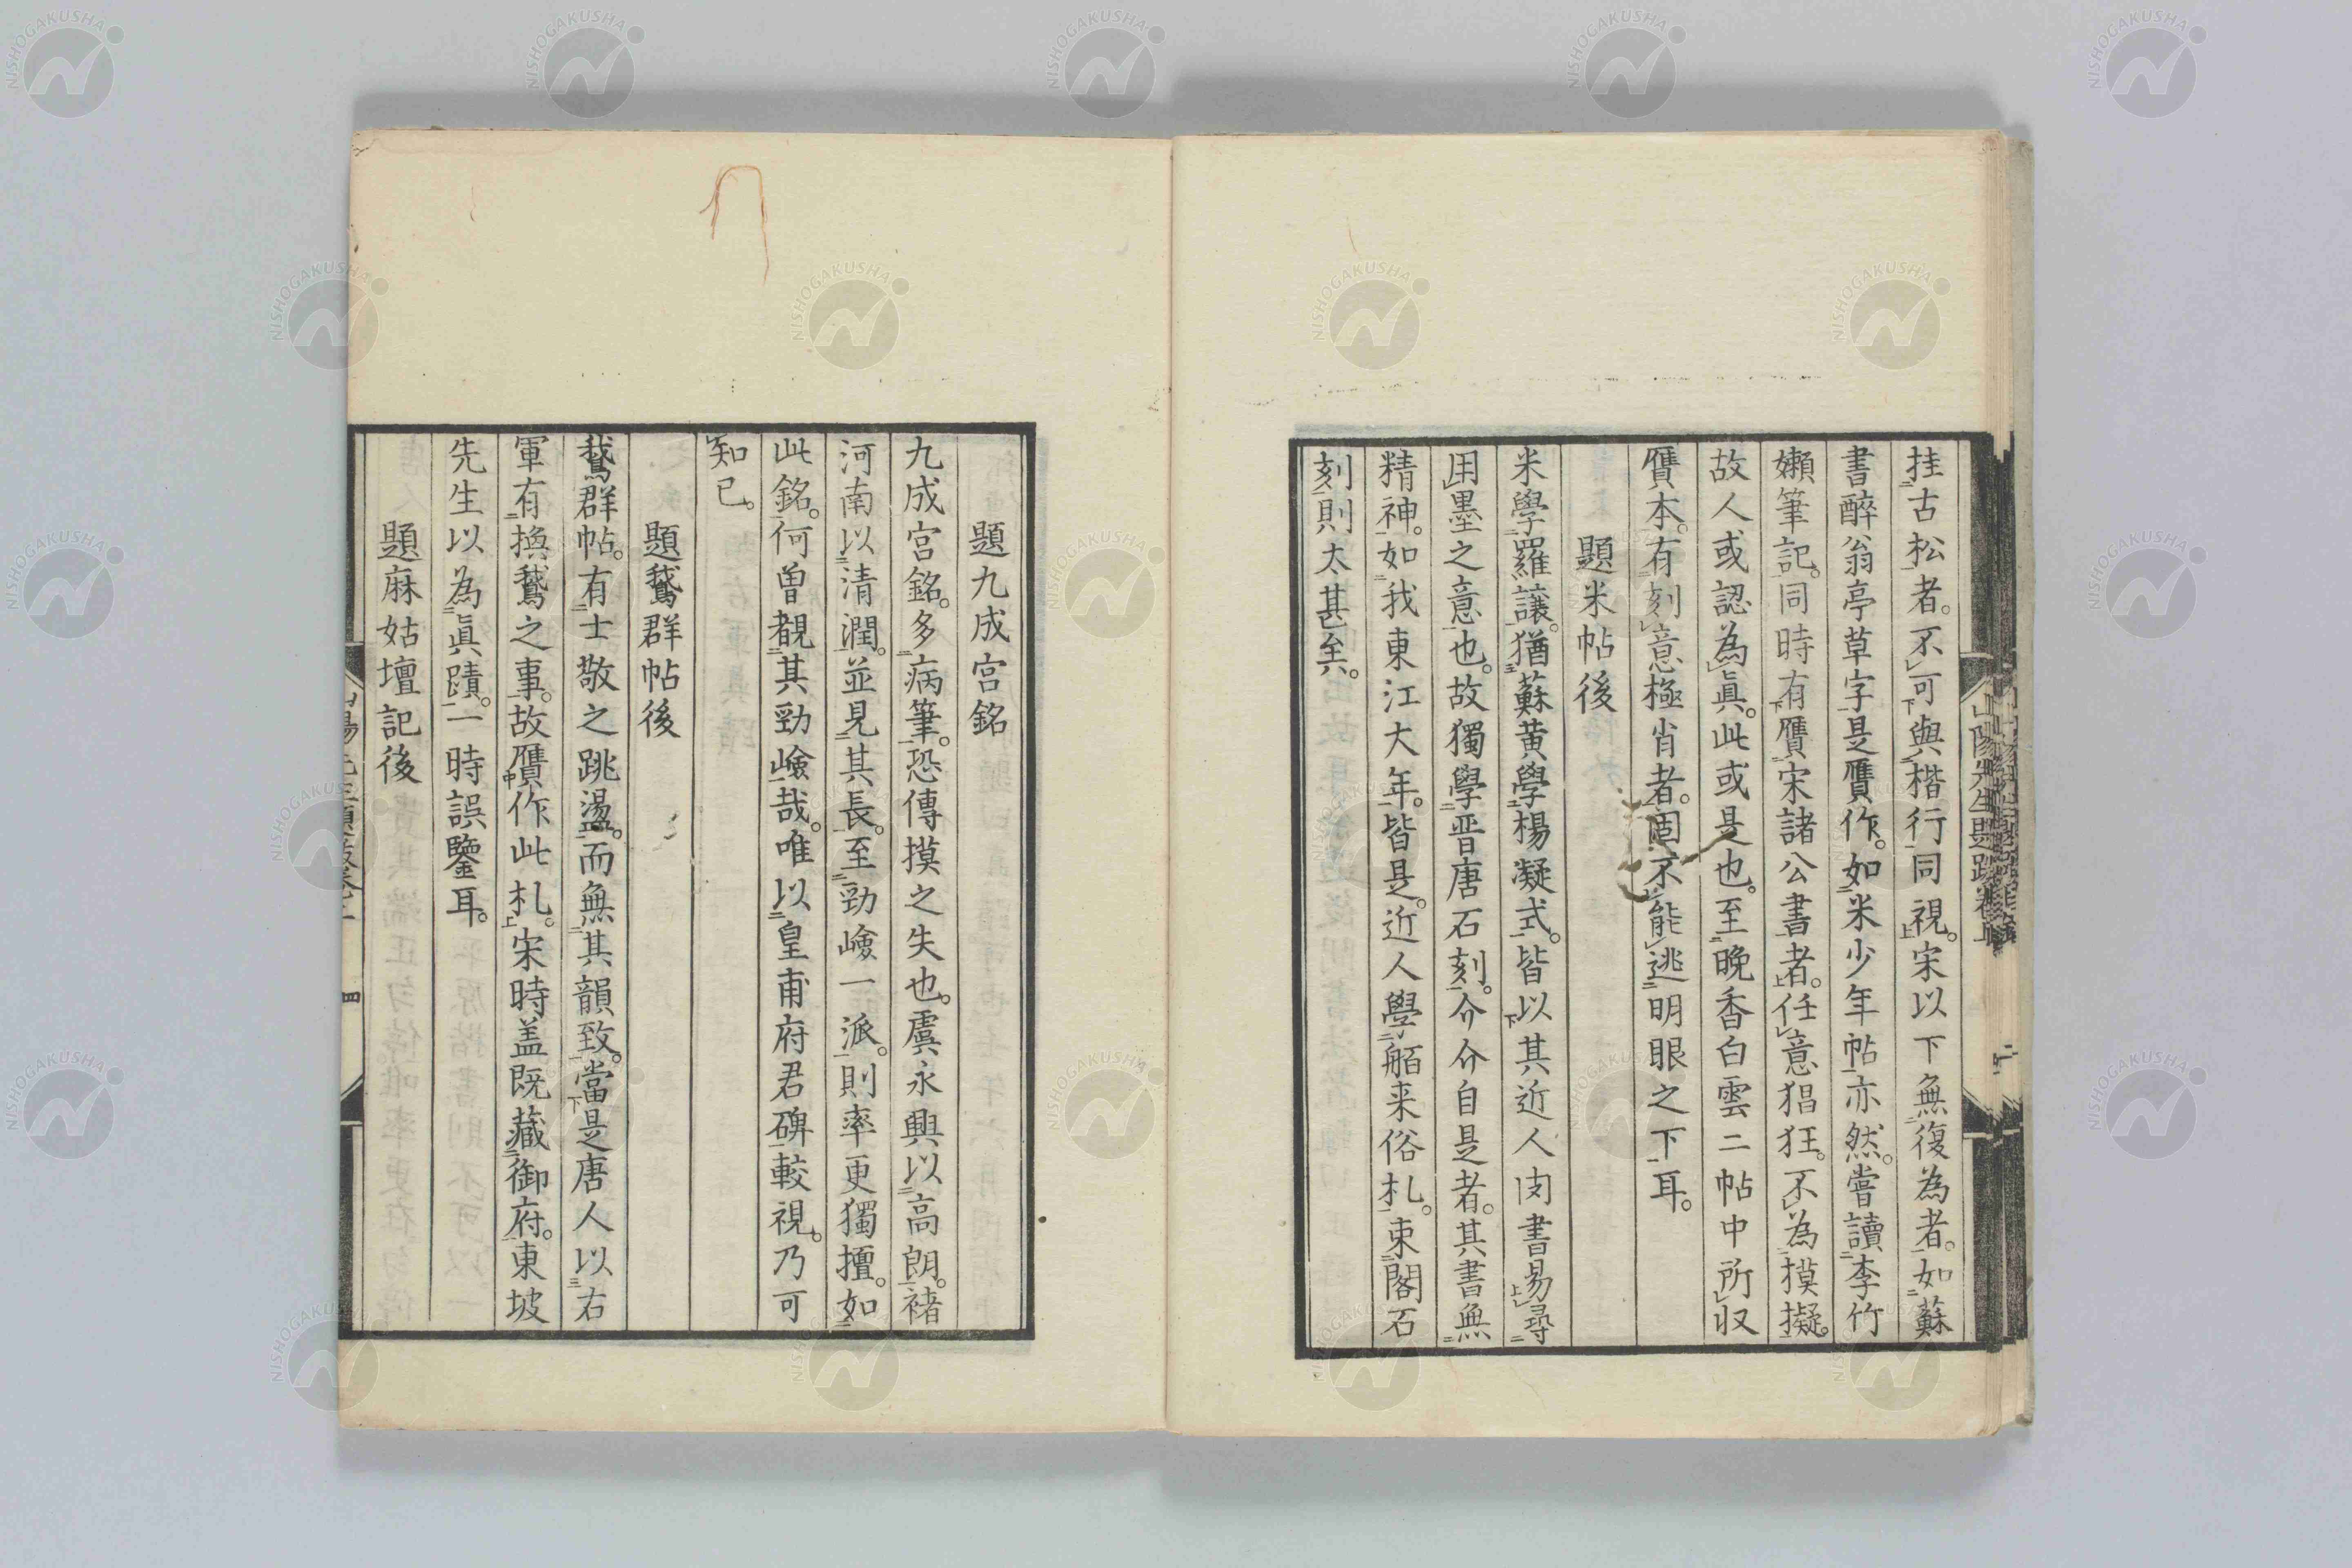 挂古松者。不可與楷行同視。宋以下無復為者。如蘇
書醉翁亭草字是贋作。如米少年帖亦然。嘗讀李竹
嬾筆記。同時有贋宋諸公書者。任意猖狂。不為摸擬。
故人或認為眞。此或是也。至晚香白雲二帖中所収
贋本。有刻意極肖者。固不能逃明眼之下耳。
題米帖後
米學羅讓。猶蘇黄學楊凝式。皆以其近人肉書易尋
用墨之意也。故獨學晋唐石刻。介介自是者。其書無
精神。如我東江大年。皆是。近人學舶来俗札。束閣石
刻則太甚矣。
題九成宮銘
九成宮銘。多病筆。恐傳摸之失也。虞永興以高朗。褚
河南以清潤。並見其長。至勁嶮一派。則率更獨擅。如
此銘。何曽覩其勁嶮哉。唯以皇甫府君碑較視。乃可
知已。
題鵞群帖後
鵞群帖。有士敬之跳盪。而無其韻致。當是唐人以右
軍有換鵞之事。故贋作此札。宋時盖既藏御府。東坡
先生以為眞蹟。一時誤鑒耳。
題麻姑壇記後
四
NISHOGAKUSHA